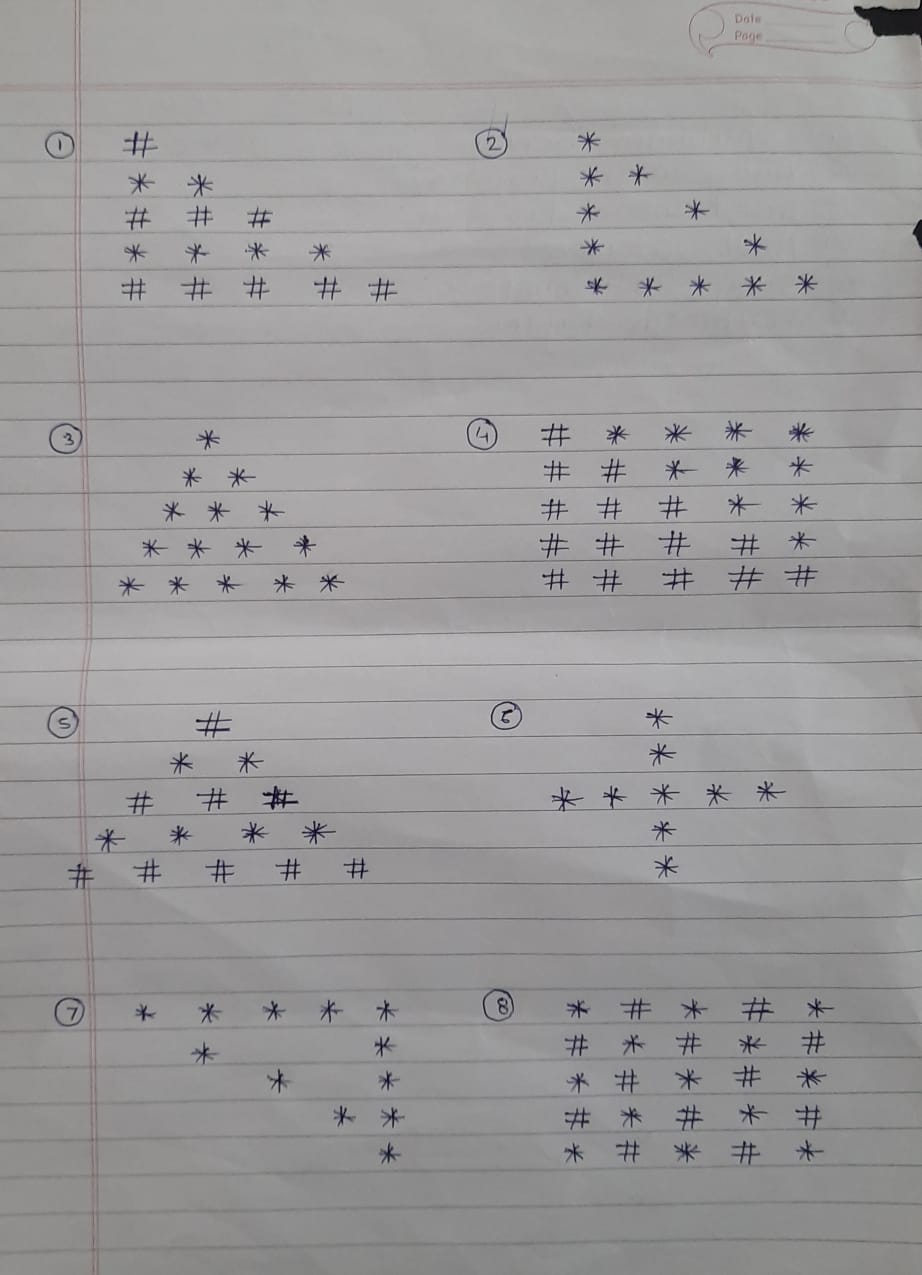 Date
Page
① #
* *
# # #
* * * *
# # # # #
② *
* *
* *
* *
* * * * *
③ *
* *
* * *
* * * *
* * * * *
④ # * * * *
# # * * *
# # # * *
# # # # *
# # # # #
⑤ #
* *
# # #
* * * *
# # # # #
⑥ *
*
* * * * *
*
*
⑦ * * * * *
* *
* *
* *
*
⑧ * # * # *
# * # * #
* # * # *
# * # * #
* # * # *